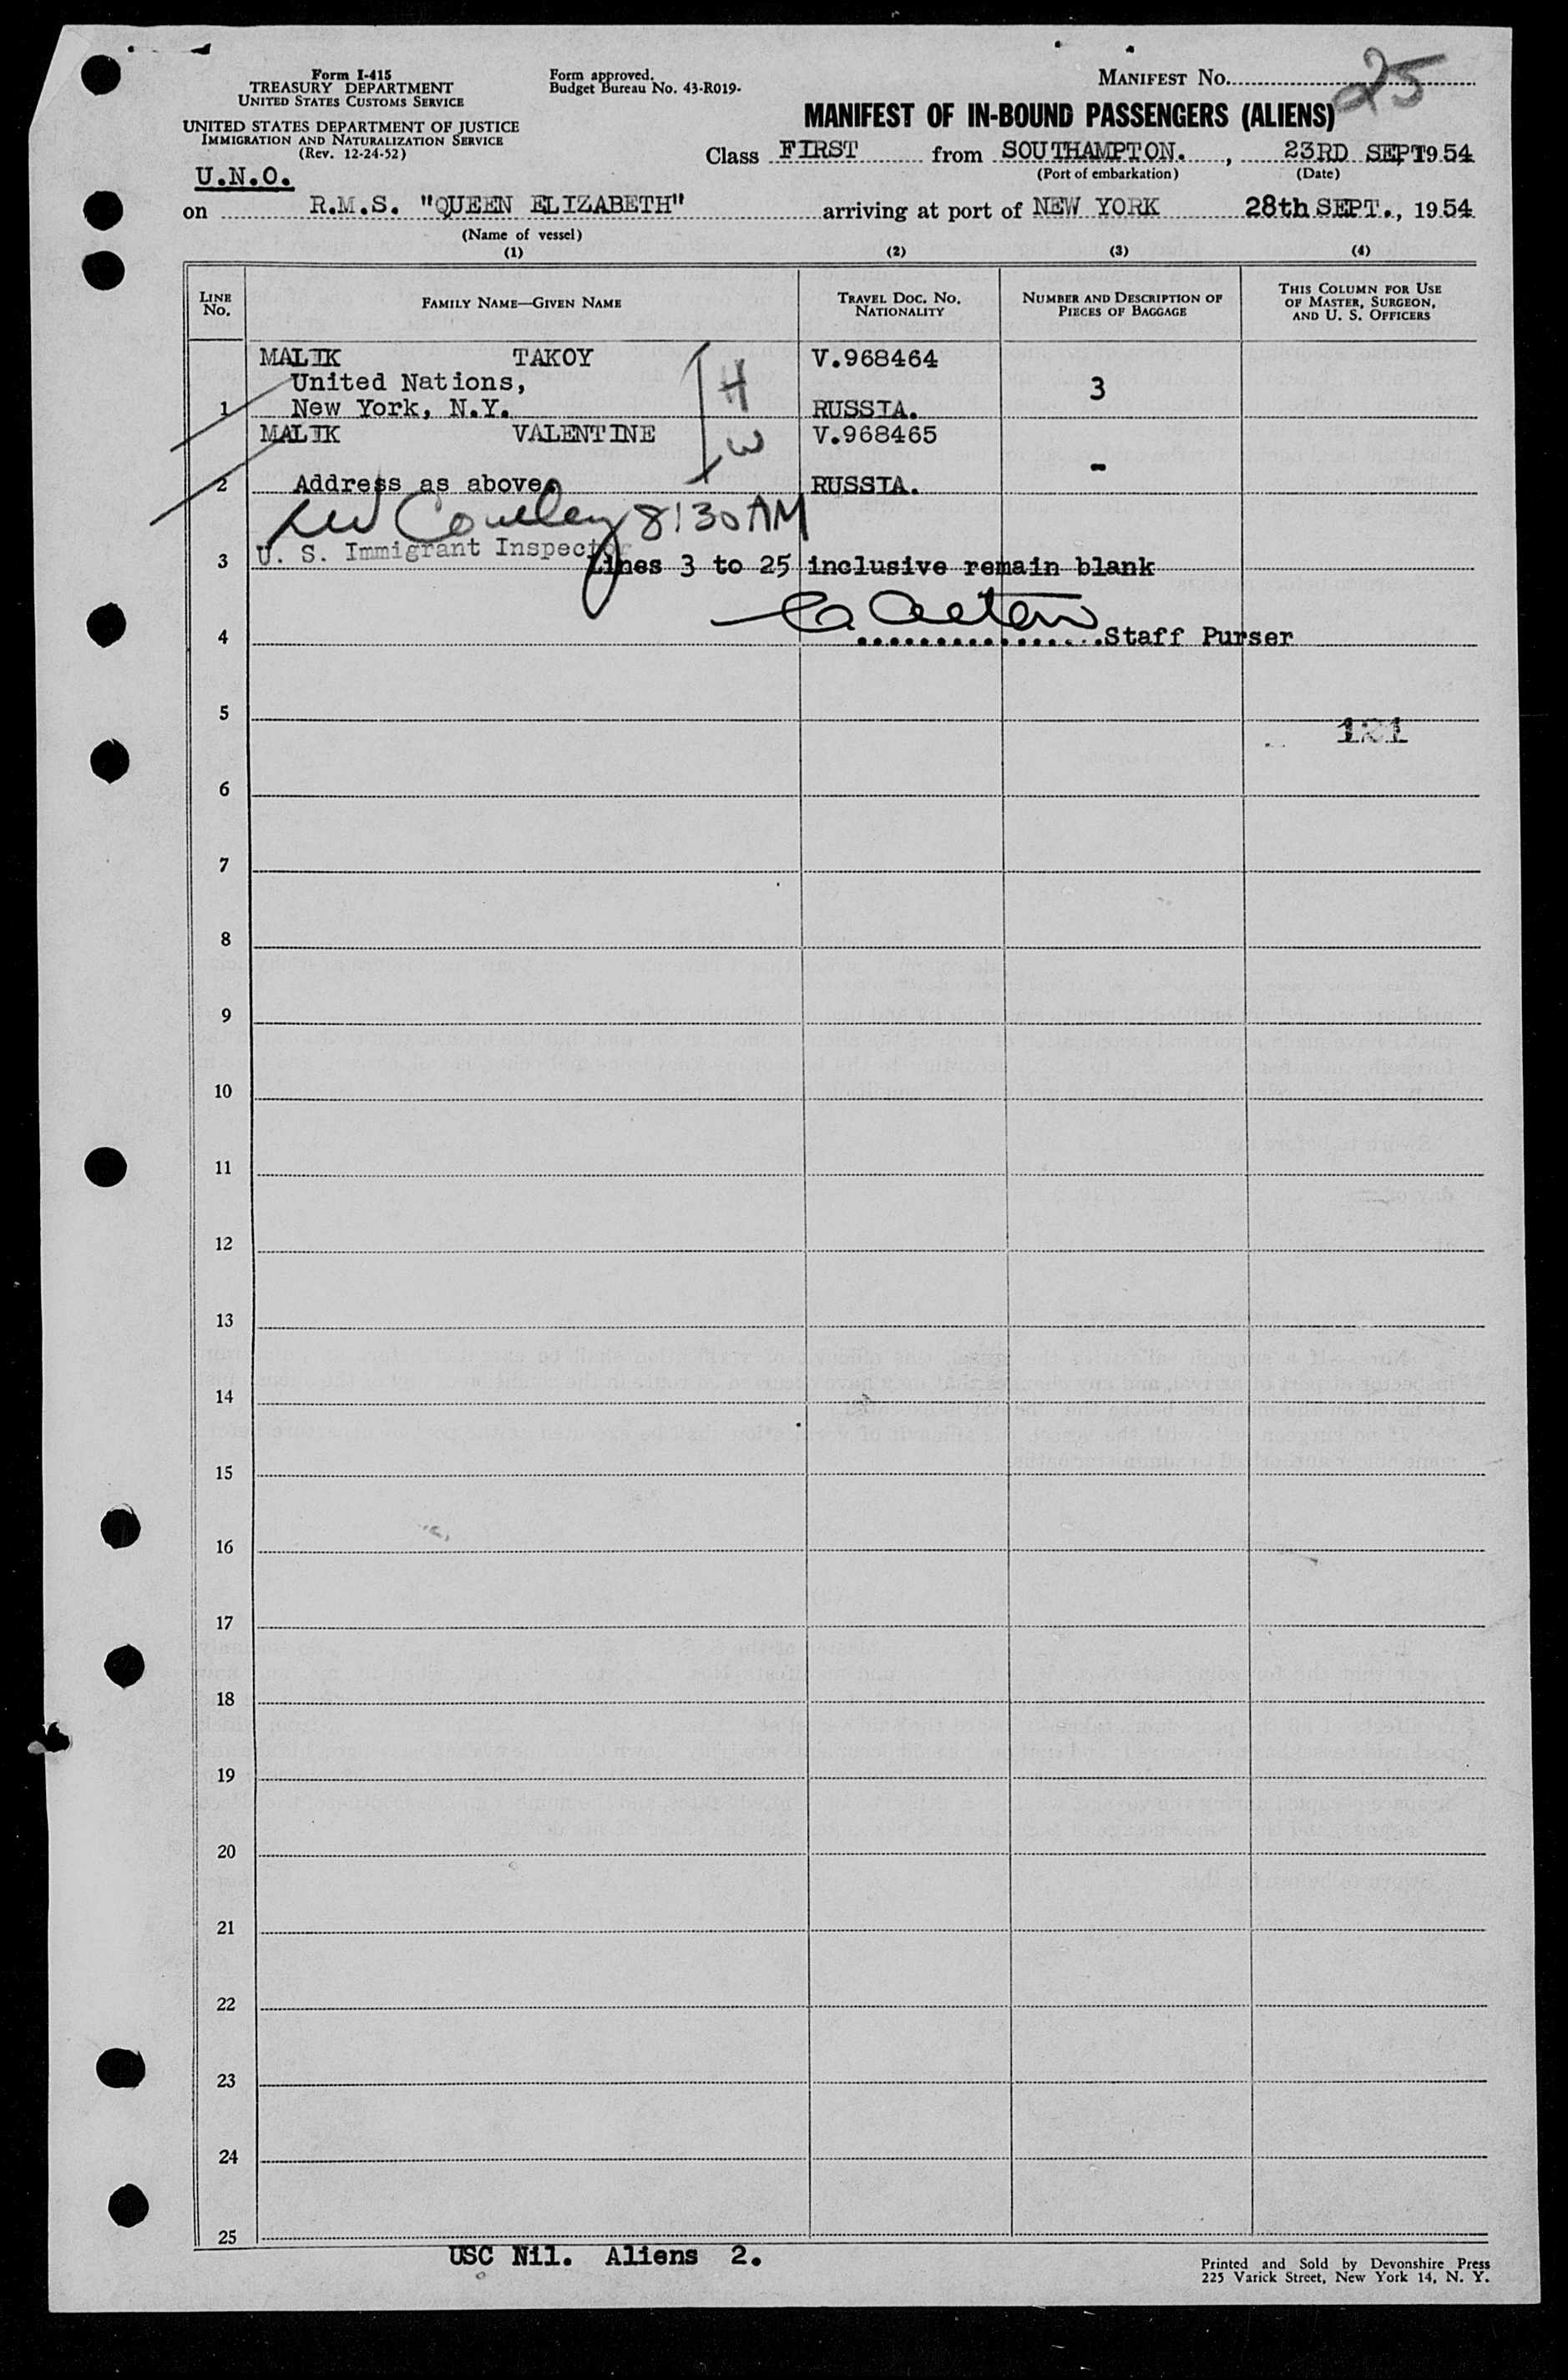 Form I-415
TREASURY DEPARTMENT
UNITED STATES CUSTOMS SERVICE
UNITED STATES DEPARTMENT OF JUSTICE
IMMIGRATION AND NATURALIZATION SERVICE
(Rev. 12-24-52)
Form approved.
Budget Bureau No. 43-R019-
MANIFEST NO. 25
MANIFEST OF IN-BOUND PASSENGERS (ALIENS)
Class FIRST from SOUTHAMPTON. , 23RD SEPT 1954
(Port of embarkation) (Date)
U.N.O.
on R.M.S. "QUEEN ELIZABETH" arriving at port of NEW YORK 28th SEPT., 1954
(Name of vessel)
(1) (2) (3) (4)
LINE NO.
FAMILY NAME—GIVEN NAME
TRAVEL DOC. NO. NATIONALITY
NUMBER AND DESCRIPTION OF PIECES OF BAGGAGE
THIS COLUMN FOR USE OF MASTER, SURGEON, AND U. S. OFFICERS
MALIK TAKOY H V.968464
United Nations, 3
1 New York, N.Y. RUSSIA.
MALIK VALENTINE W V.968465
-
2 Address as above. RUSSIA.
8:30 AM
U. S. Immigrant Inspector
3 Lines 3 to 25 inclusive remain blank
4 Staff Purser
5
121
6
7
8
9
10
11
12
13
14
15
16
17
18
19
20
21
22
23
24
25
USC Nil. Aliens 2.
Printed and Sold by Devonshire Press
225 Varick Street, New York 14, N. Y.